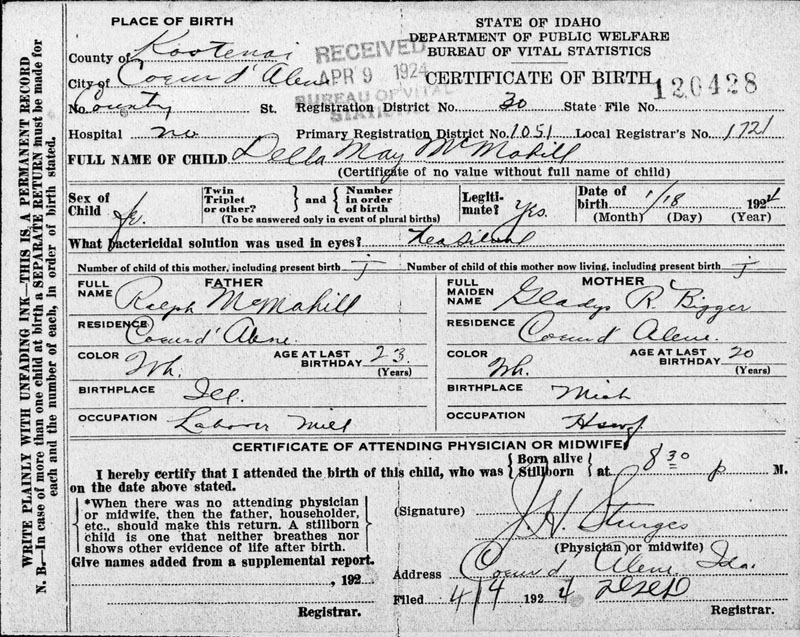 WRITE PLAINLY WITH UNFADING INK—THIS IS A PERMANENT RECORD
N. B.—In case of more than one child at birth a SEPARATE RETURN must be made for
each and the number of each, in order of birth stated.
PLACE OF BIRTH
County of Kootenai
City of Coeur d'Alene
No. County St.
Hospital no
RECEIVED
APR 9 1924
BUREAU OF VITAL
STATISTICS
STATE OF IDAHO
DEPARTMENT OF PUBLIC WELFARE
BUREAU OF VITAL STATISTICS
CERTIFICATE OF BIRTH 120428
Registration District No. 30 State File No.
Primary Registration District No. 1051 Local Registrar's No. 1721
FULL NAME OF CHILD Della May McMahill
(Certificate of no value without full name of child)
Sex of Child
Twin Triplet or other? and Number in order of birth
(To be answered only in event of plural births)
Legiti- mate? Yes.
Date of birth 1/18 1924
(Month) (Day) (Year)
What bactericidal solution was used in eyes?
Number of child of this mother, including present birth
Number of child of this mother now living, including present birth
FATHER
FULL NAME Ralph McMahill
RESIDENCE Coeur d'Alene.
COLOR Wh. AGE AT LAST BIRTHDAY 23 (Years)
BIRTHPLACE Ill.
OCCUPATION Laborer Mill
MOTHER
FULL MAIDEN NAME Gladys R Bigger
RESIDENCE Coeur d'Alene.
COLOR Wh. AGE AT LAST BIRTHDAY 20 (Years)
BIRTHPLACE Mich
OCCUPATION Hswf
CERTIFICATE OF ATTENDING PHYSICIAN OR MIDWIFE
I hereby certify that I attended the birth of this child, who was Born alive Stillborn at 8 30 p M.
on the date above stated.
*When there was no attending physician
or midwife, then the father, householder,
etc., should make this return. A stillborn
child is one that neither breathes nor
shows other evidence of life after birth.
Give names added from a supplemental report.
, 192
Registrar.
(Signature) J. H. Sturges
(Physician or midwife)
Address Coeur d'Alene Ida.
Filed 4/4 1924
Registrar.